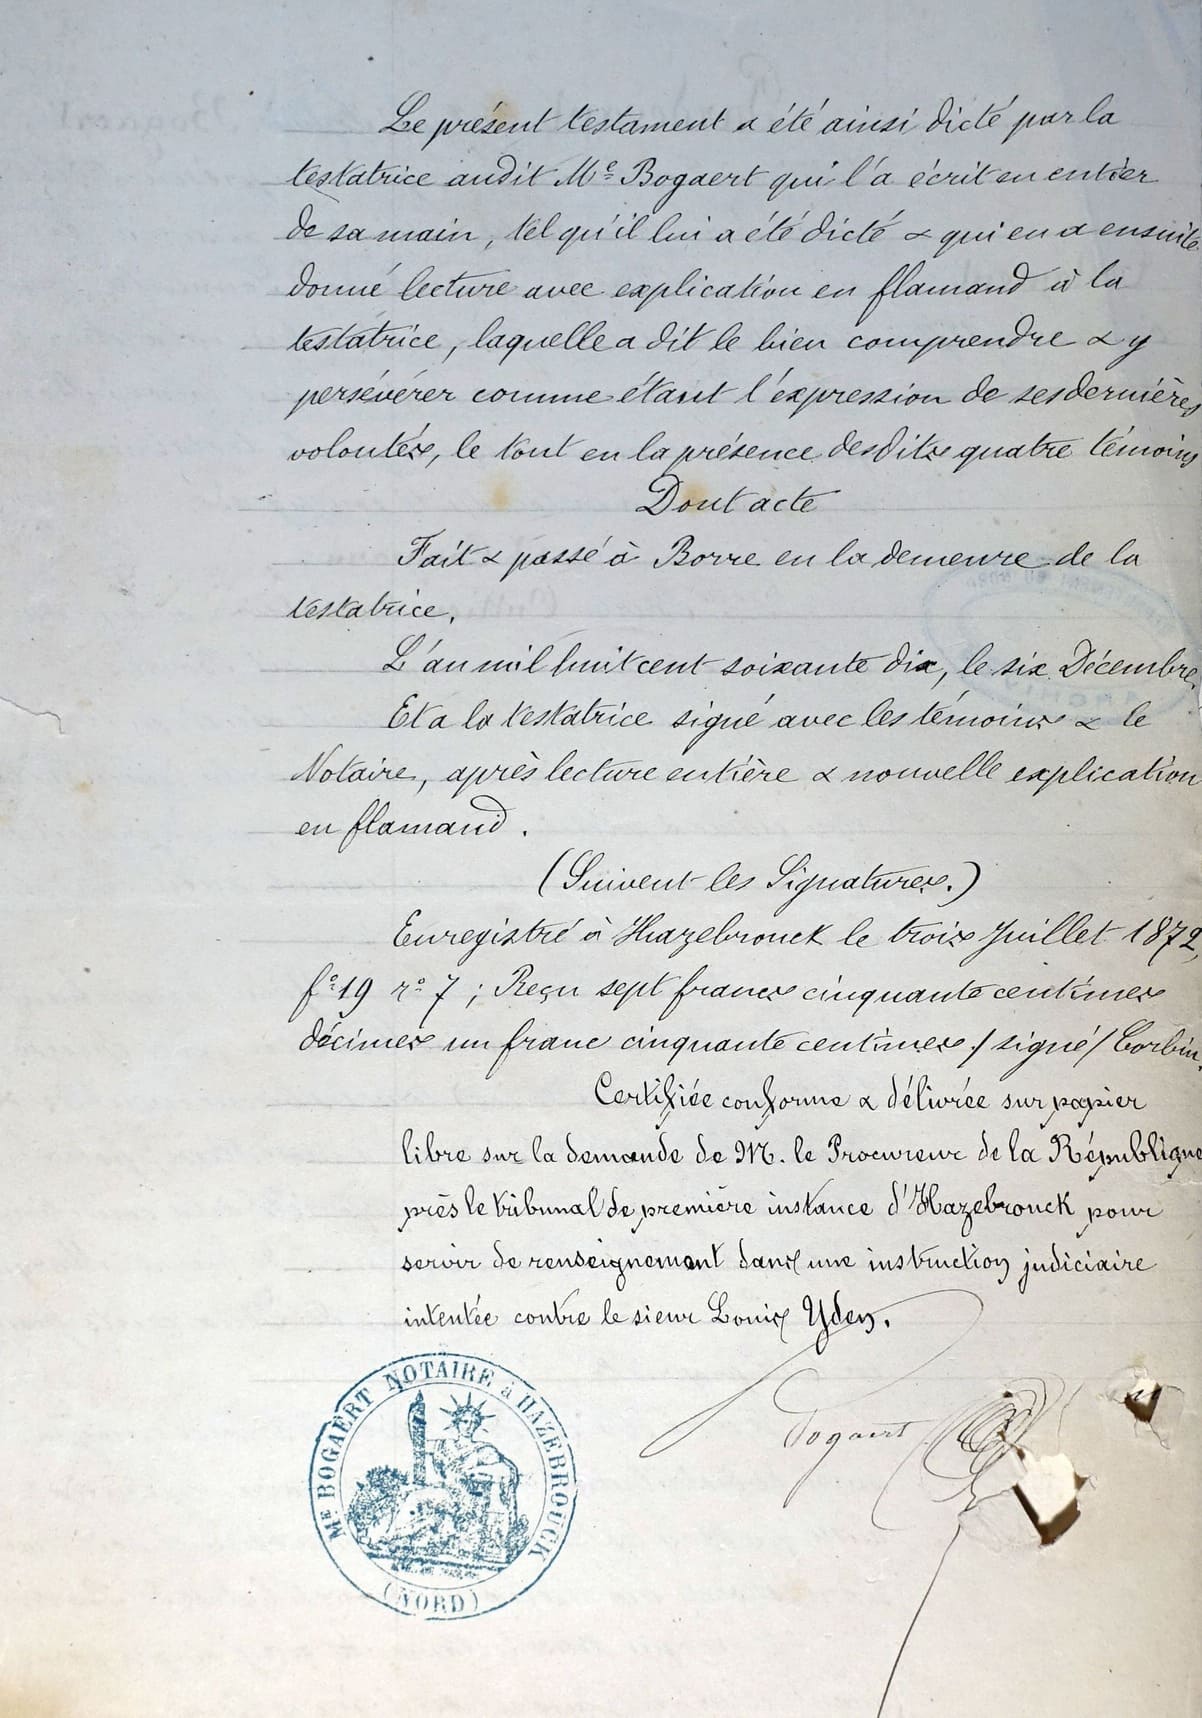 Le présent testament a été ainsi dicté par la
testatrice audit Me Bogaert qui l'a écrit en entier
de sa main, tel qu'il lui a été dicté & qui en a ensuite
donné lecture avec explication en flamand à la
testatrice, laquelle a dit le bien comprendre & y
persévérer comme étant l'expression de ses dernières
volontés, le tout en la présence desdits quatre témoins
Dont acte
Fait & passé à Borre en la demeure de la
testatrice.
L'an mil huit cent soixante dix, le six Décembre.
Et a la testatrice signé avec les témoins & le
Notaire, après lecture entière & nouvelle explication
en flamand.
(Suivent les Signatures.)
Enregistré à Hazebrouck le trois Juillet 1872,
fo 19 ro 7 ; Reçu sept francs cinquante centimes
décimes un franc cinquante centimes./ signé/ Corbin.
Certifiée conforme & délivrée sur papier
libre sur la demande de M. le Procureur de la République
près le tribunal de première instance d'Hazebrouck pour
servir de renseignement dans une instruction judiciaire
intentée contre le sieur Louis Yden.
Bogaert
Me BOGAERT NOTAIRE à HAZEBROUCK
(NORD)